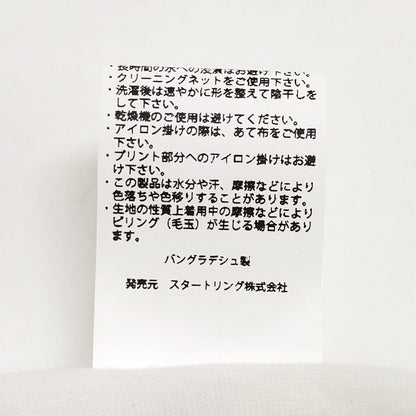 ・長時間の水への浸漬はお避け下さい。
・クリーニングネットをご使用下さい。
・洗濯後は速やかに形を整えて陰干しを
して下さい。
・乾燥機のご使用は避けてください。
・アイロン掛けの際は、あて布をご使用
下さい。
・プリント部分へのアイロン掛けはお避
け下さい。
・この製品は水分や汗、摩擦などにより
色落ちや色移りすることがあります。
・生地の性質上着用中の摩擦などにより
ピリング（毛玉）が生じる場合があり
ます。
バングラデシュ製
発売元 スタートリング株式会社